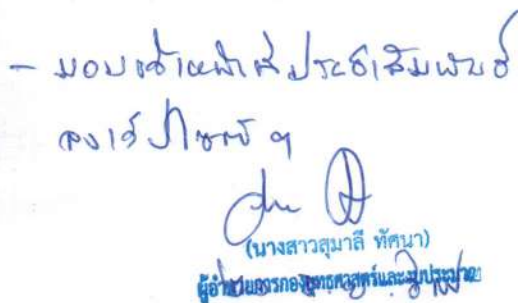 - มอบเจ้าหน้าที่ประชาสัมพันธ์
ลงเว็ปไซต์ ฯ
(นางสาวสุมาลี ทัศนา)
ผู้อำนวยการกองยุทธศาสตร์และงบประมาณ